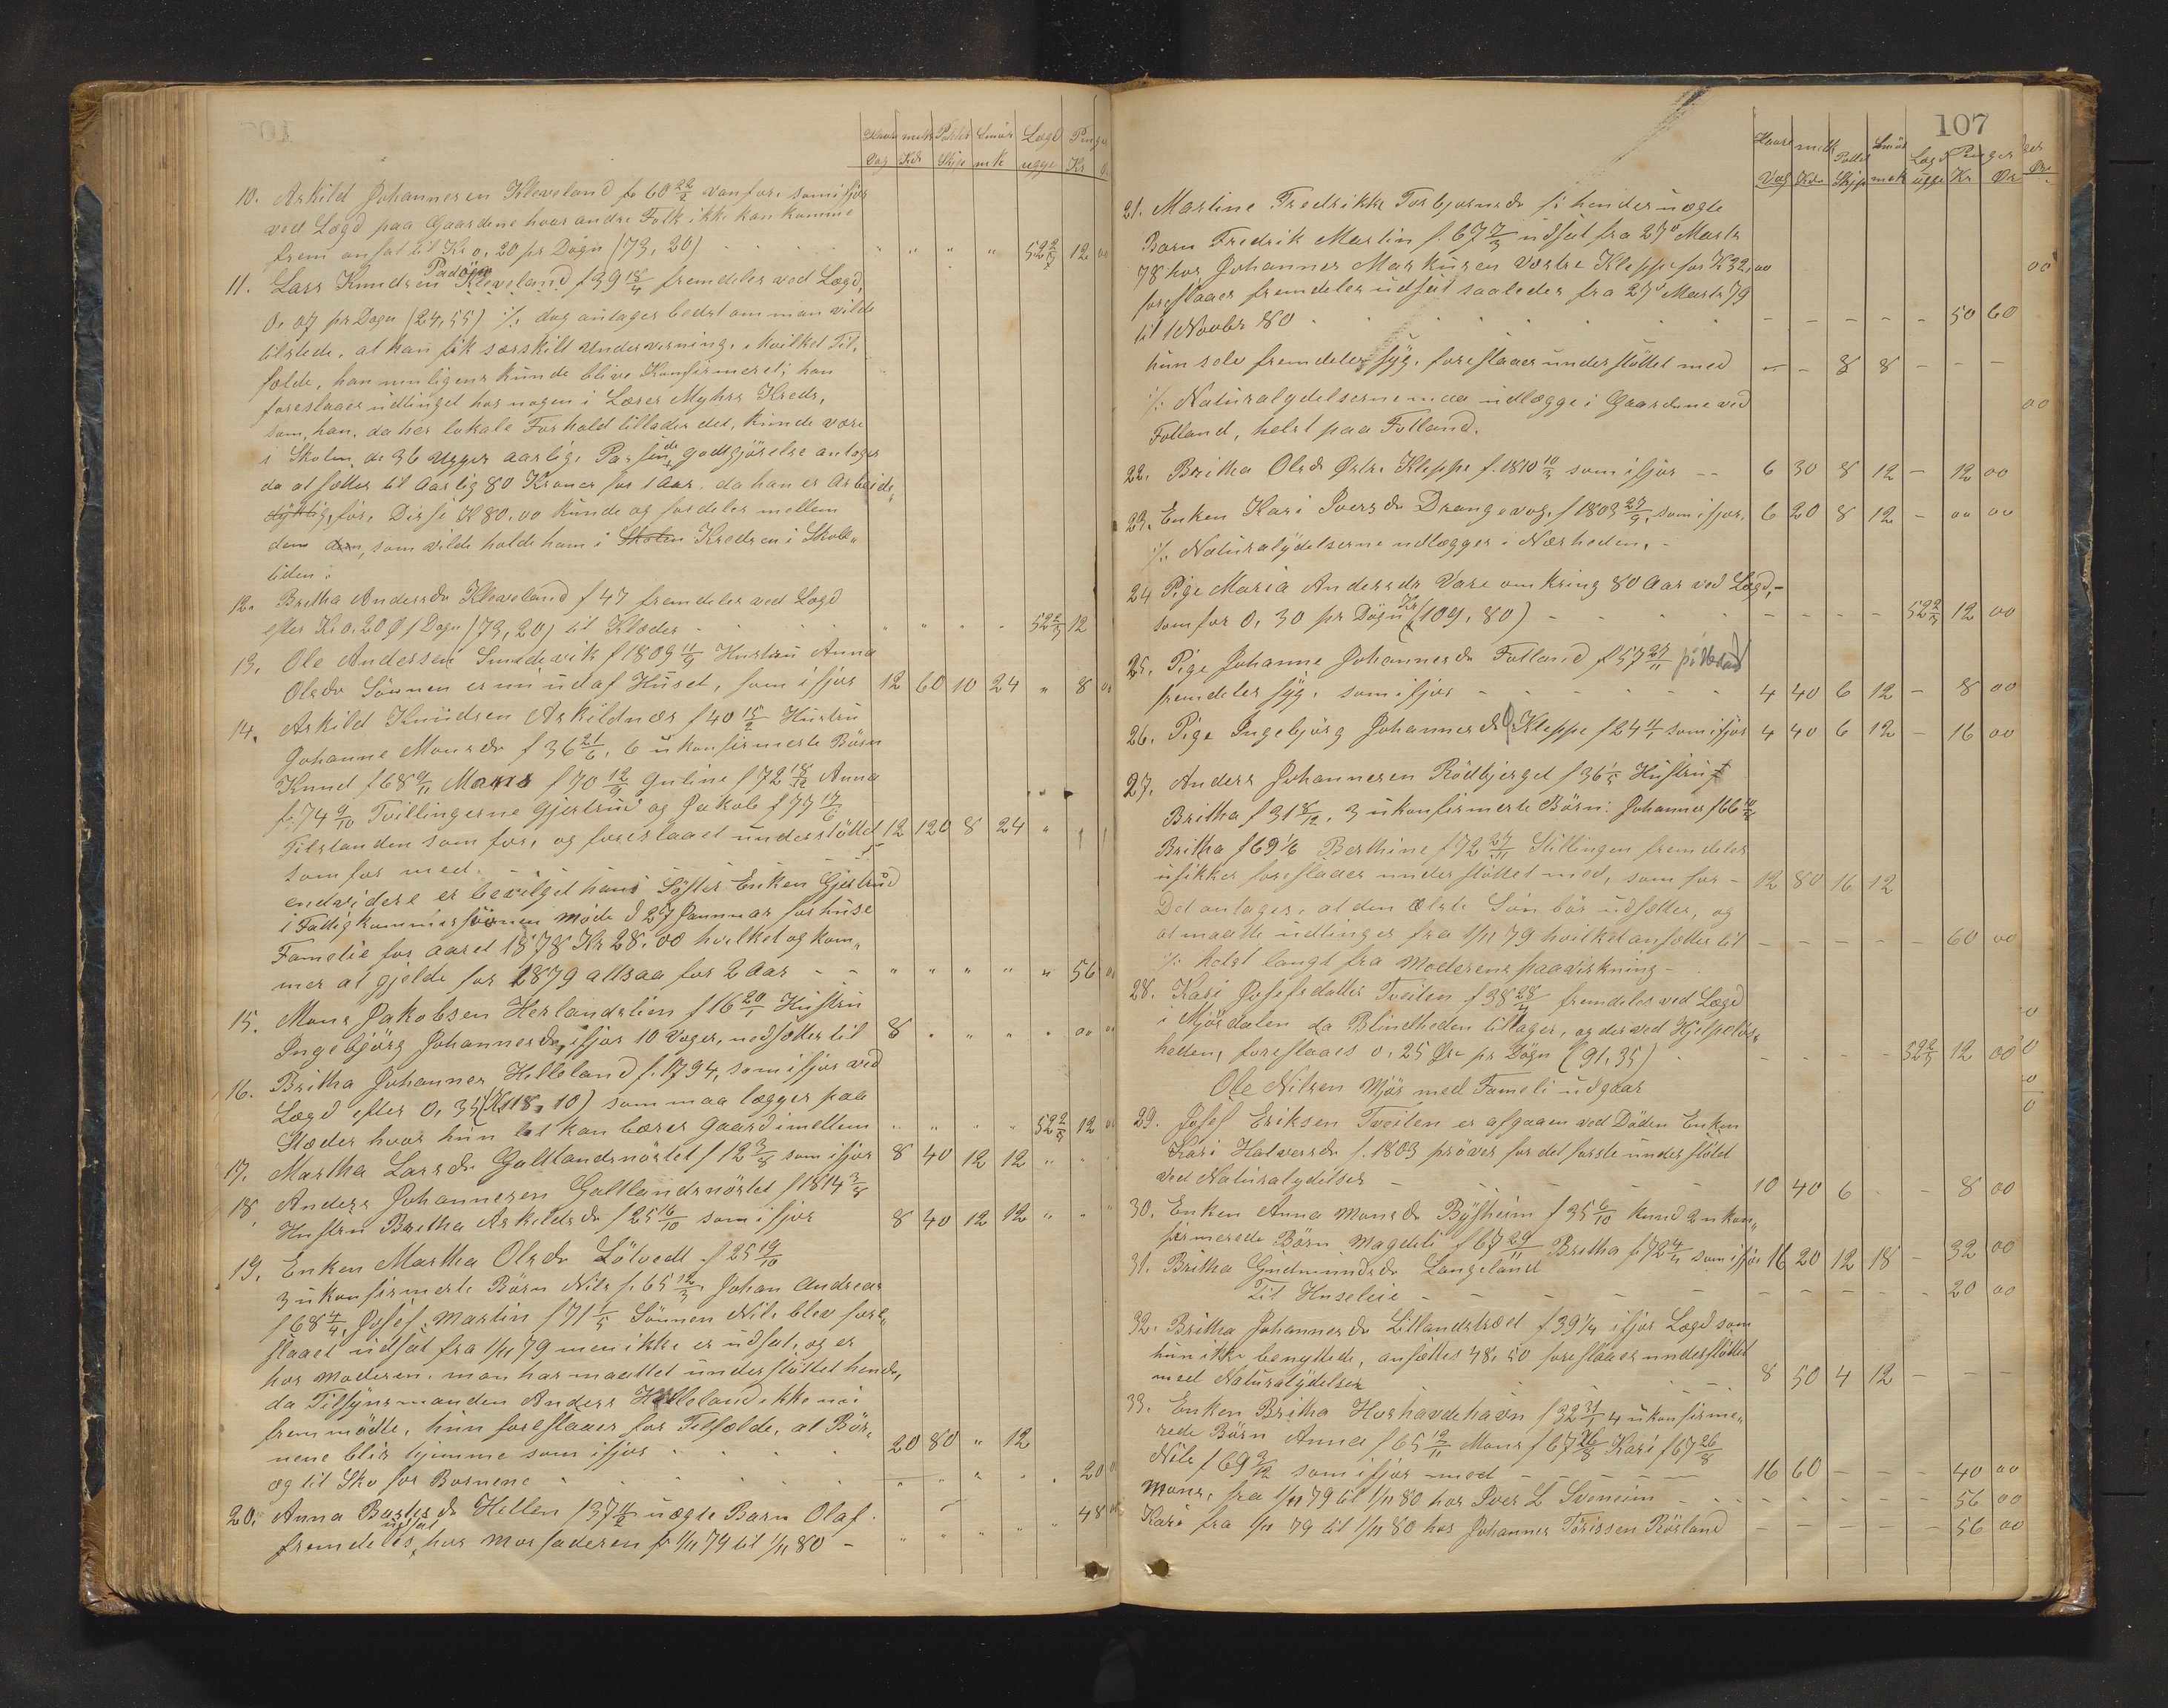 Havre melk Potet Smör Lægd Penge
Vog Kdr Skjp mk ugge Kr
10. Askild Johannesen Kleveland f. 60 22/2 vanfør, som ifjor
ved Lægd paa Gaardene hvor andre Folk ikke kan komme
frem ansat til Kr 0,20 pr Døgn (73,20) " " " " 52 2/7 12 00
11. Lars Knudsen Kleveland f 39 18/4 fremdeles ved Lægd,
0,07 pr Døgn (24,55) ./. dog antages bedst om man vilde
tilstede, at han fik særskilt Undervisning, i hvilket Til-
fælde, han muligens kunde blive Konfirmeret; han
foreslaaes udtinget hos nogen i Læres Myhrs Kreds,
som, han, da her lokale Forhold tillader det, kunde være
i Skolen de 36 Ugger aarlig,
da at sættes til Aarlig 80 Kroner for 1 Aar, da han er Arbeids-
dygtig, før, Disse K 80,00 kunde og fordeles mellem
dem dem, som vilde holde ham i Skolen Kredsen i Skole-
tiden.
12. Britha Andersdr Kleveland f 47 fremdeles ved Lægd
efter Kr 0,20 Ø f Døgn (73,20) til Klæder " " " " 52 2/7 12
13. Ole Andersen Sundsvik f 1809 11/9 Hustru Anna
Olsdr Sönnen er nu ud af Huset, som ifjor 12 60 10 24 " 8 00
14. Askild Knudsen Askildnes f 40 15/2 Hustru
Johanne Monsdr f 36 21/6, 6 ukonfirmerte Börn
Knud f 68 9/11 Mons f 70 12/9 Guline f 72 18/12 Anna
f. 74 9/10 Tvillingerne Gjertrud og Jakob f 77 17/6
Tilstanden som før, og foreslaaet understöttet 12 120 8 24 "
som før med.
endvidere er bevilget hans Søster Enken Gjertrud
i Fattigkommissionen møde d 27 Januar for huse
Famelie for aaret 1878 Kr 28,00 hvilket og kom-
mer at gjelde for 1879 altsaa for 2 Aar - - " " " " " 56 00
15. Mons Jakobsen Herlandslien f 16 20/1 Hustru
Ingebjörg Johannesdr, ifjor 10 Voger, nedsættes til 8 " " " " 00 00
16. Britha Johannes Helleland f. 1794, som ifjor ved
Lægd efter 0,34 (K 118,10) som maa lægges paa
Stæder hvor hun let kan bæres Gaard imellem " " " " 52 2/7 12 00
17. Martha Larsdr Galtlandsnöstet f 12 3/8 som ifjor 8 40 12 12 " "
18. Anders Johannesen Galtlandsnöstet f 1814 3/8
Hustru Britha Askildsdr f 25 16/10 som ifjor 8 40 12 12 " " "
19. Enken Martha Olsdr Lötvedt f 25 19/10
3 ukonfirmerte Börn Nils f. 65 12/3 Johan Andreas
f 68 4/4, Josef Martin f 71 1/5 Sönnen Nils blev fore-
slaaet udsat fra 1/11 79 men ikke er udsat, og er
hos moderen. man har maattet understöttet hende,
da Tilsynsmanden Anders Helleland ikke nu
fremmödte, hun foreslaaes for Tilfælde, at Bör-
nene blir hjemme som ifjor 20 80 " 12
og til Sko for Børnene " " " " " 20 0
20. Anna Bertesdr Hellen f 37 4/2 uægte Barn Olaf
fremdeles udsat hos Morfaderen fr 1/11 79 til 1/11 80 - " " " " " 48 00
107
Havre melk Potet Smör Lægd Penger
Vog Kdr Skjp mrk ugge Kr Ør
21. Martine Fredrikke Torbjornsdr f: hendes uægte
Barn Fredrik Martin f. 67 7/3 udsat fra 27d Marts
78 hos Johannes Markusen Vestre Kleppe for K 32,00
foreslaaes fremdeles udsat saaledes fra 27d Marts 79
til 1 Novbr 80 - - - - - 50 60
hun selv fremdeles syg, foreslaaes understöttet med - - 8 8 - - -
./. Naturalydelserne maa udlægge i Gaardene ved
Folland, helst paa Folland.
22. Britha Olsdr Østre Kleppe f. 1810 10/3 som ifjor -- 6 30 8 12 - 12 00
23. Enken Kari Iversdr Drangevog, f 1803 27/9, som ifjor, 6 20 8 12 - 00 00
./. Naturalydelserne udlægges i Nærheden. -
24 Pige Maria Andersdr Vare omkring 80 Aar ved Lægd, -
som før 0,30 pr Døgn Kr (109,80) - - - - - 52 2/7 12 00
25. Pige Johanne Johannesdr Folland f 57 27/11
fremdeles syg, som ifjor - - - 4 40 6 12 - 8 00
26. Pige Ingebjörg Johannesdr Ø. Kleppe f 24 4/1 som ifjor 4 40 6 12 - 16 00
27. Anders Johannesen Rödbjerget f 36 1/5 Hustru
Britha f 31 8/12, 3 ukonfirmerte Börn: Johannes f 66
Britha f 69 1/6 Berthine f 72 27/11 Stillingen fremdeles
usikker foreslaaes understöttet med, som før - 12 80 16 12
Det antages, at den ælste Sön bör udsættes, og
at maatte udtinges fra 1/11 79 hvilket ansættes til - - - - - 60 00
./. helst langt fra Moderens paavirkning -
28. Kari Josefsdatter Tveiten f 38 28/4 fremdeles ved Lægd
i Mjösdalen da Blindheden tiltager, og derved Hjelpelös-
heden, foreslaaes 0,25 Øre pr Dögn (91,35) - - - - 52 2/7 12 00
Ole Nilsen Mjös med Fameli udgaar
29. Josef Eriksen Tveiten er afgaaen ved Döden Enken
Kari Halversdr f. 1803 pröves for det første understöttet
ved Naturalydelser - - - 10 40 6 - - 8 00
30. Enken Anna Monsdr Bysheim f 35 6/10 kund 2 ukon-
firmerede Börn Magdeli f 67 29/11 Britha f. 72 4/4 som ifjor 16 20 12 18 - 32 00
31. Britha Gudmundsdr Langeland
Til Huseleie - - - - - - 20 00
32. Britha Johannesdr Litlandstræet f 39 1/4 ifjor Lægd som
hun ikke benyttede, ansættes 48,50 foreslaaes understöttet
med Naturalydelser 8 50 4 12 - - -
33. Enken Britha Hushavdehavn f 32 31/1 4 ukonfirme-
rede Börn Anna f 65 12/11 Mons f 67 26/8 Kari f 67 26/8
Nils f 69 2/12 som ifjor med - - 16 60 - - - 40 00
Mons, fra 1/11 79 til 1/11 80 hos Iver L Sveneim - - - - - 56 00
Kari fra 1/11 79 til 1/11 80 hos Johannes Torissen Rösland - - - - - 56 00